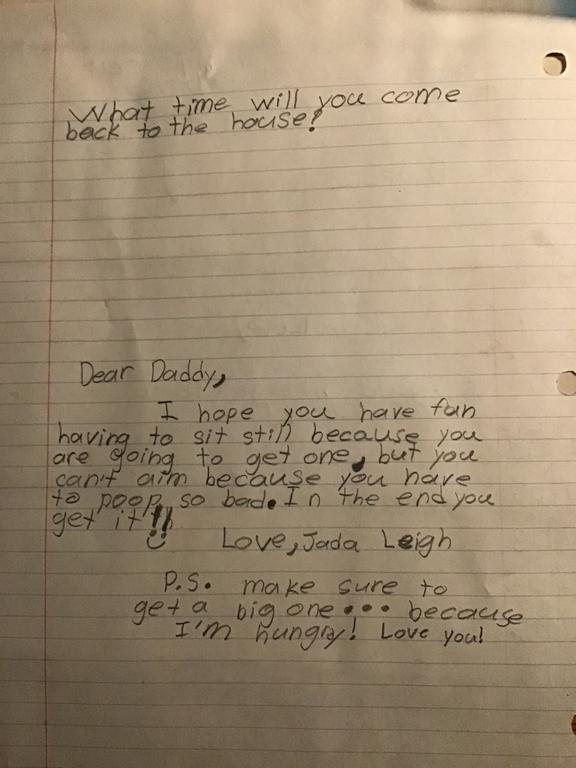 What time will you come
back to the house?
Dear Daddy,
I hope you have fun
having to sit still because you
are going to get one, but you
can't aim because you have
to poop so bad. In the end you
get it!!
Love, Jada Leigh
P.S. make sure to
get a big one... because
I'm hungry! Love you!